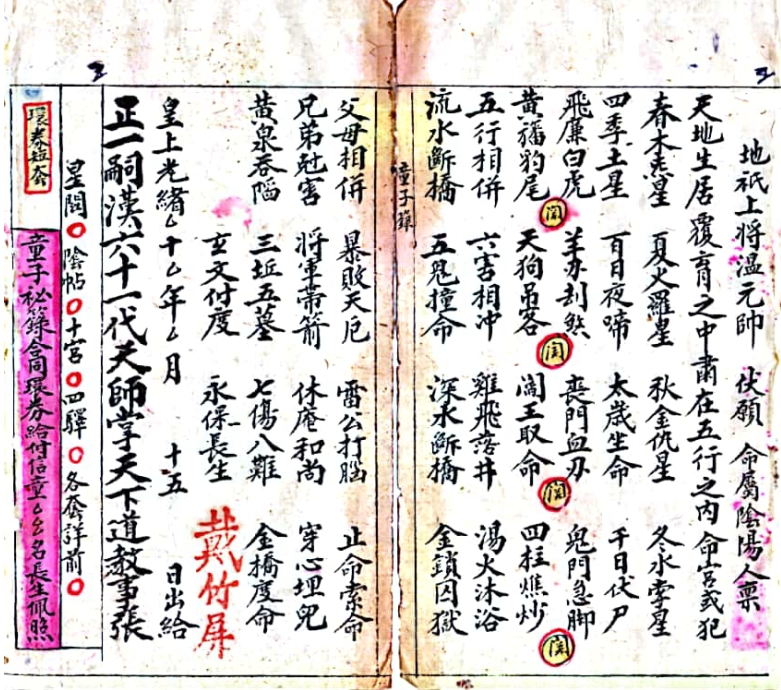 地祇上将温元帥 伏願 命屬陰陽人禀
天地生居覆育之中肅在五行之内命宫或犯
春木炁星 夏火羅星 秋金仇星 冬水孛星
四季土星 百日夜啼 太歲生命 千日伏尸
飛廉白虎 羊刃刦煞 喪門血刃 鬼門急脚
黄旛豹尾 関 天狗吊客 関 閻王取命 関 四柱燋炒 関
五行相併 六害相冲 雞飛落井 湯火沐浴
流水斷橋 五鬼撞命 深水斷橋 金鎖囚獄
童子籙
父母相併 暴敗天厄 雷公打腦 止命索命
兄弟尅害 將軍帶箭 休庵和尚 穿心埋兒
黄泉吞陷 三坵五墓 七傷八難 金橋度命
玄文付度 永保長生
戴竹屏
皇上光緒厶十厶年厶月 十五 日出給
正一嗣漢六十一代天師掌天下道教事張
星関 陰帖 十宫 四驛 各套詳前
環券短套
童子祕籙合同環券給付信童厶厶名長生佩照